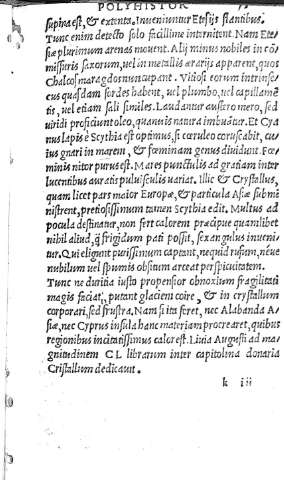 POLYHISTOR
supina est, & extenta. Inveniuntur Etesijs flantibus.
Tunc enim detecto solo facillime internitent. Nam Ete-
siæ plurimum arenas movent. Alij minus nobiles in cõ-
missuris saxorum, vel in metallis ærarijs apparent, quos
Chalcosmaragdos nuncupant. Vitiosi eorum intrinse-
cus quasdam sordes habent, vel plumbo, vel capillamẽ
tis, vel etiam sali similes. Laudantur austero mero, sed
viridi proficiunt oleo, quamvis natura imbuãtur. Et Cya
nus lapis è Scythia est optimus, si cœruleo coruscabit, cu-
ius gnari in marem, & fœminam genus dividunt. Fœ-
minis nitor purus est. Mares punctulis ad gratiam inter
lucentibus auratis pulvisculis variat. Illic & Crystallus,
quam licet pars maior Europæ, & particula Asiæ submi
nistrent, pretiosissimum tamen Scythia edit. Multus ad
pocula destinatur, non fert calorem præcipue quamlibet
nihil aliud, q̃ frigidum pati possit, sexangulus inveni-
tur. Qui eligunt purissimum captant, nequid rufum, neve
nubilum vel spumis obstitum arceat perspicuitatem.
Tunc ne duritia iusto propensior obnoxium fragilitati
magis faciat, putant glaciem coire, & in crystallum
corporari, sed frustra. Nam si ita foret, nec Alabanda A-
siæ, nec Cyprus insula hanc materiam procrearet, quibus
regionibus incitatissimus calor est. Livia Augusti ad ma-
gnitudinem CL librarum inter capitolina donaria
Cristallum dedicavit.
k iij